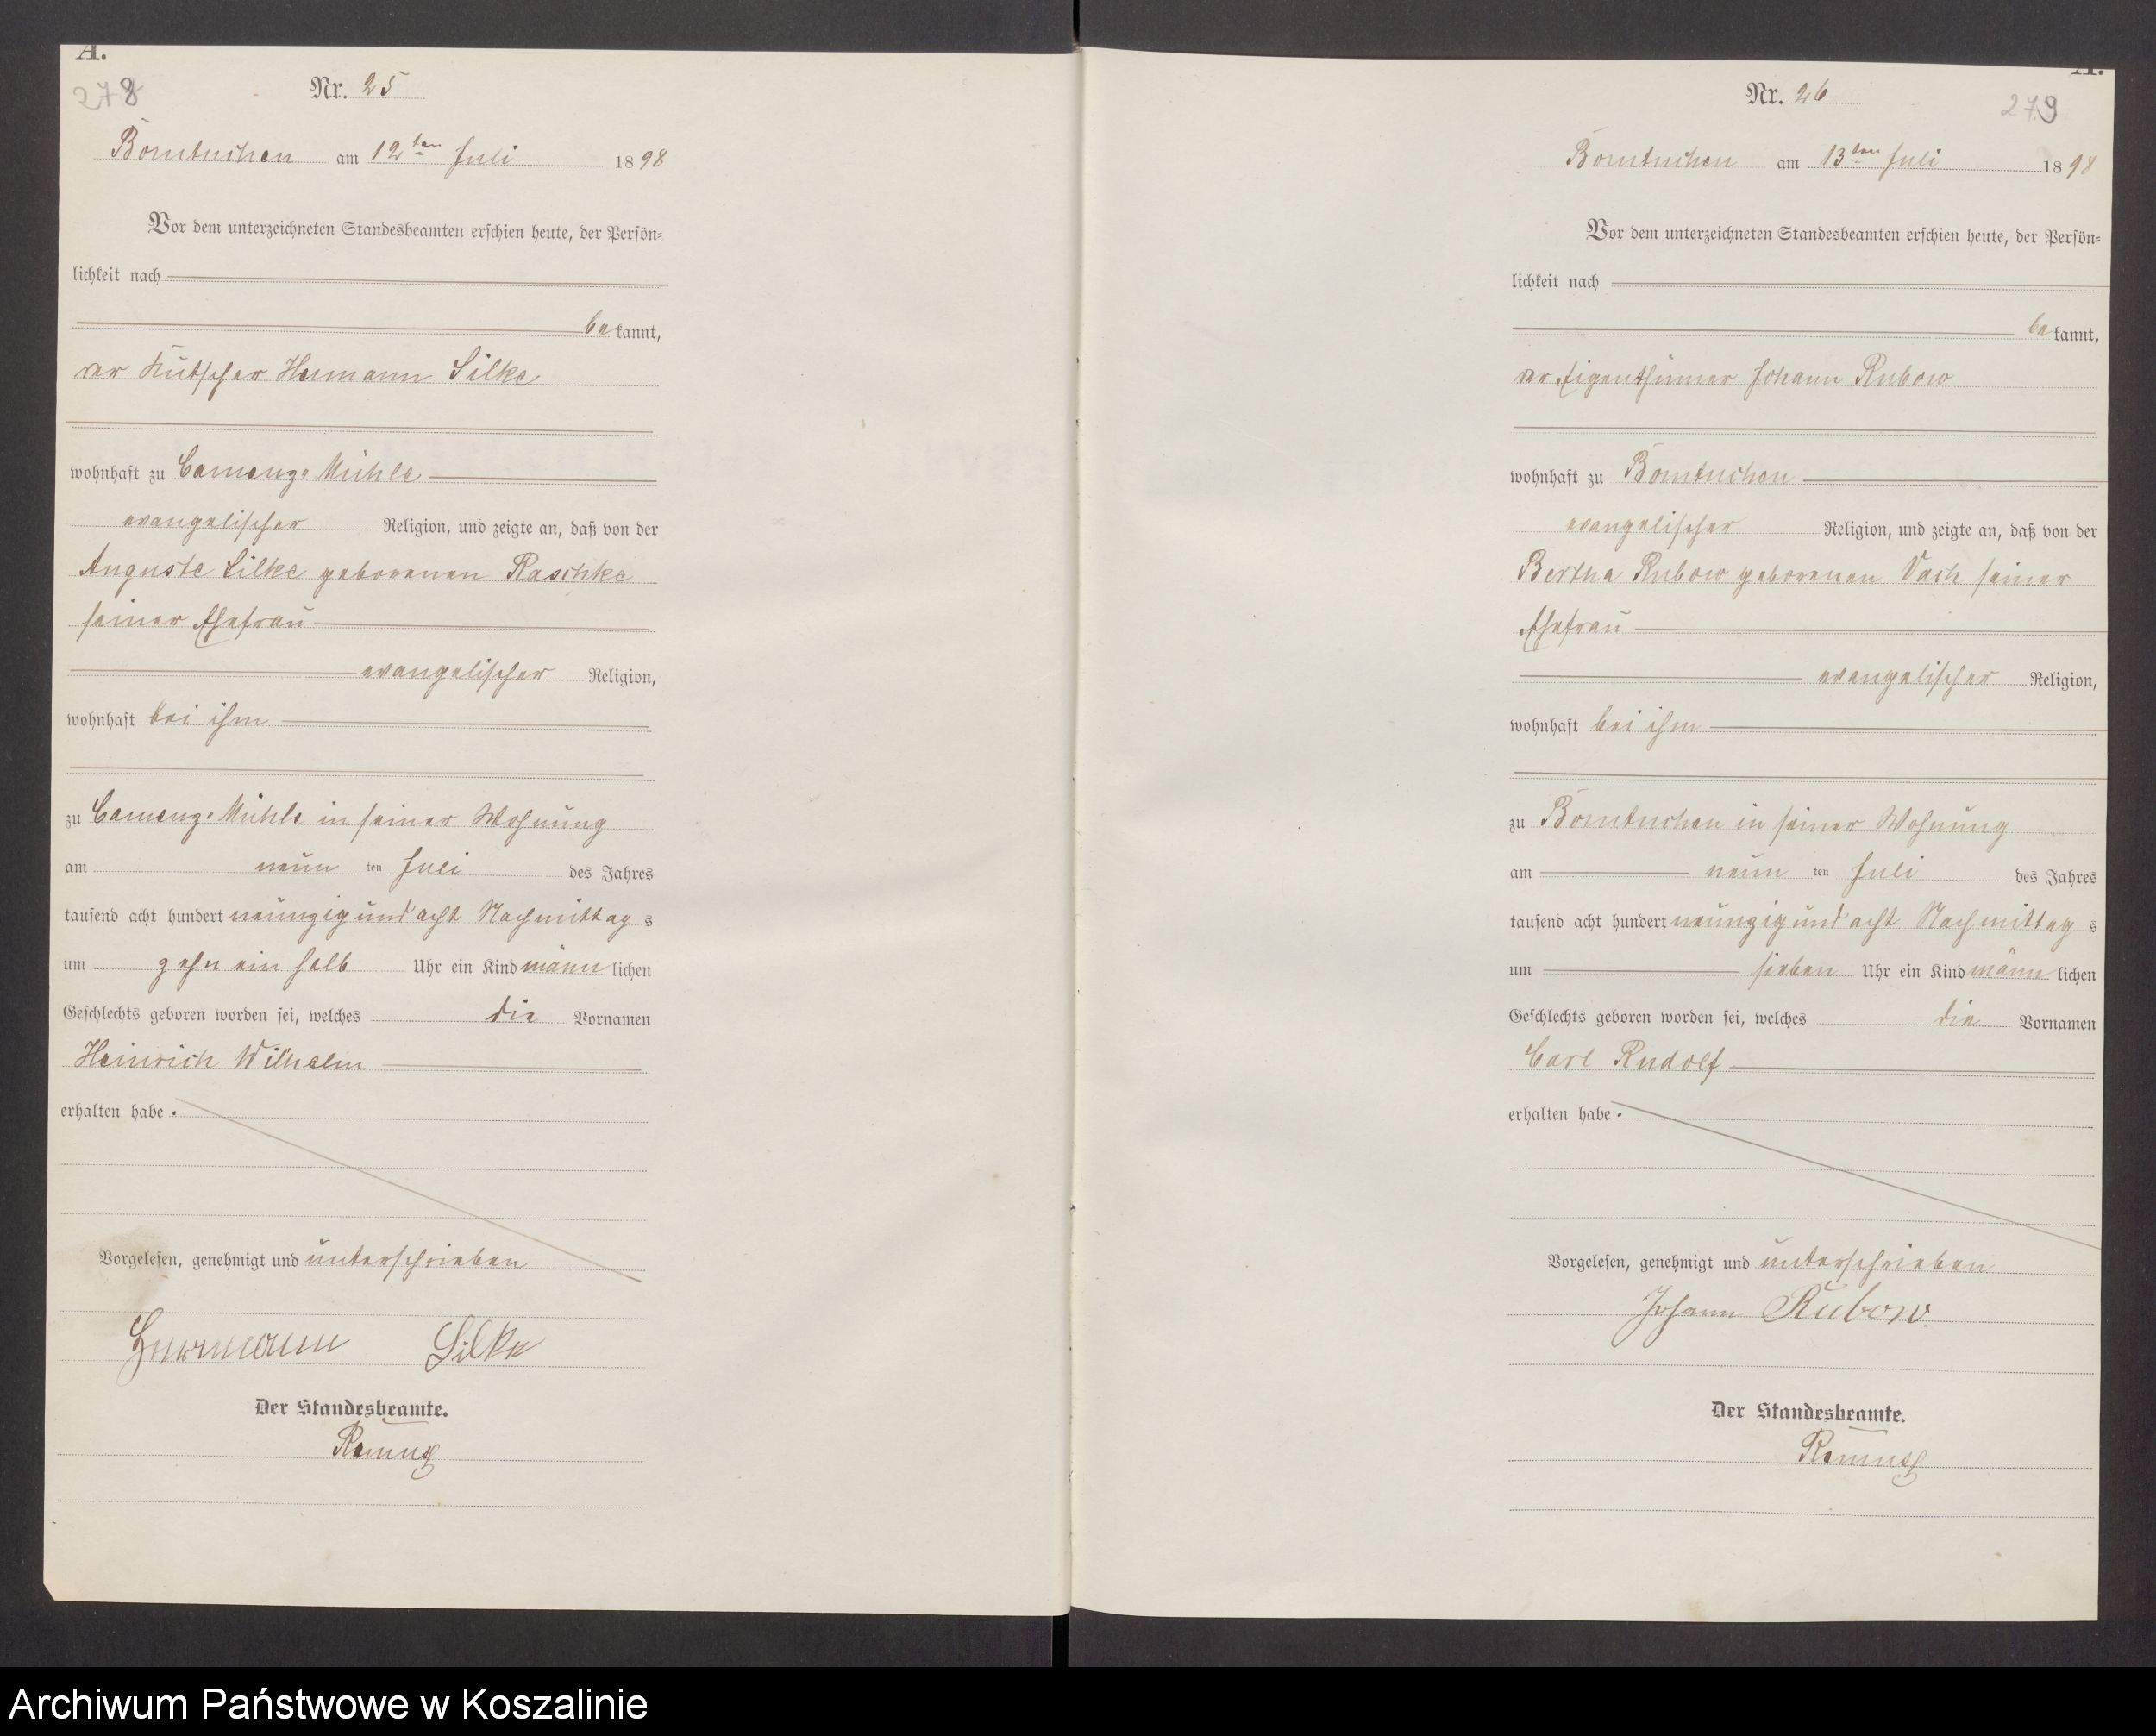 A.
278
Nr. 25
Borntuchen am 12ten Juli 1898
Vor dem unterzeichneten Standesbeamten erschien heute, der Persön-
lichkeit nach
bekannt,
der Kutscher Hermann Silke
wohnhaft zu Camenz-Mühle
evangelischer Religion, und zeigte an, daß von der
Auguste Silke geborenen Raschke
seiner Ehefrau
evangelischer Religion,
wohnhaft bei ihm
zu Camenz-Mühle in seiner Wohnung
am neun ten Juli des Jahres
tausend acht hundert neunzig und acht Nachmittags
um zehn ein halb Uhr ein Kind männlichen
Geschlechts geboren worden sei, welches die Vornamen
Heinrich Wilhelm
erhalten habe.
Vorgelesen, genehmigt und unterschrieben
Herrmann Silke
Der Standesbeamte.
Remus
A.
279
Nr. 26
Borntuchen am 13ten Juli 1898
Vor dem unterzeichneten Standesbeamten erschien heute, der Persön-
lichkeit nach
bekannt,
der Eigenthümer Johann Rubow
wohnhaft zu Borntuchen
evangelischer Religion, und zeigte an, daß von der
Bertha Rubow geborenen Vach seiner
Ehefrau
evangelischer Religion,
wohnhaft bei ihm
zu Borntuchen in seiner Wohnung
am neun ten Juli des Jahres
tausend acht hundert neunzig und acht Nachmittags
um sieben Uhr ein Kind männlichen
Geschlechts geboren worden sei, welches die Vornamen
Carl Rudolf
erhalten habe.
Vorgelesen, genehmigt und unterschrieben
Johann Rubow.
Der Standesbeamte.
Remus
Archiwum Państwowe w Koszalinie